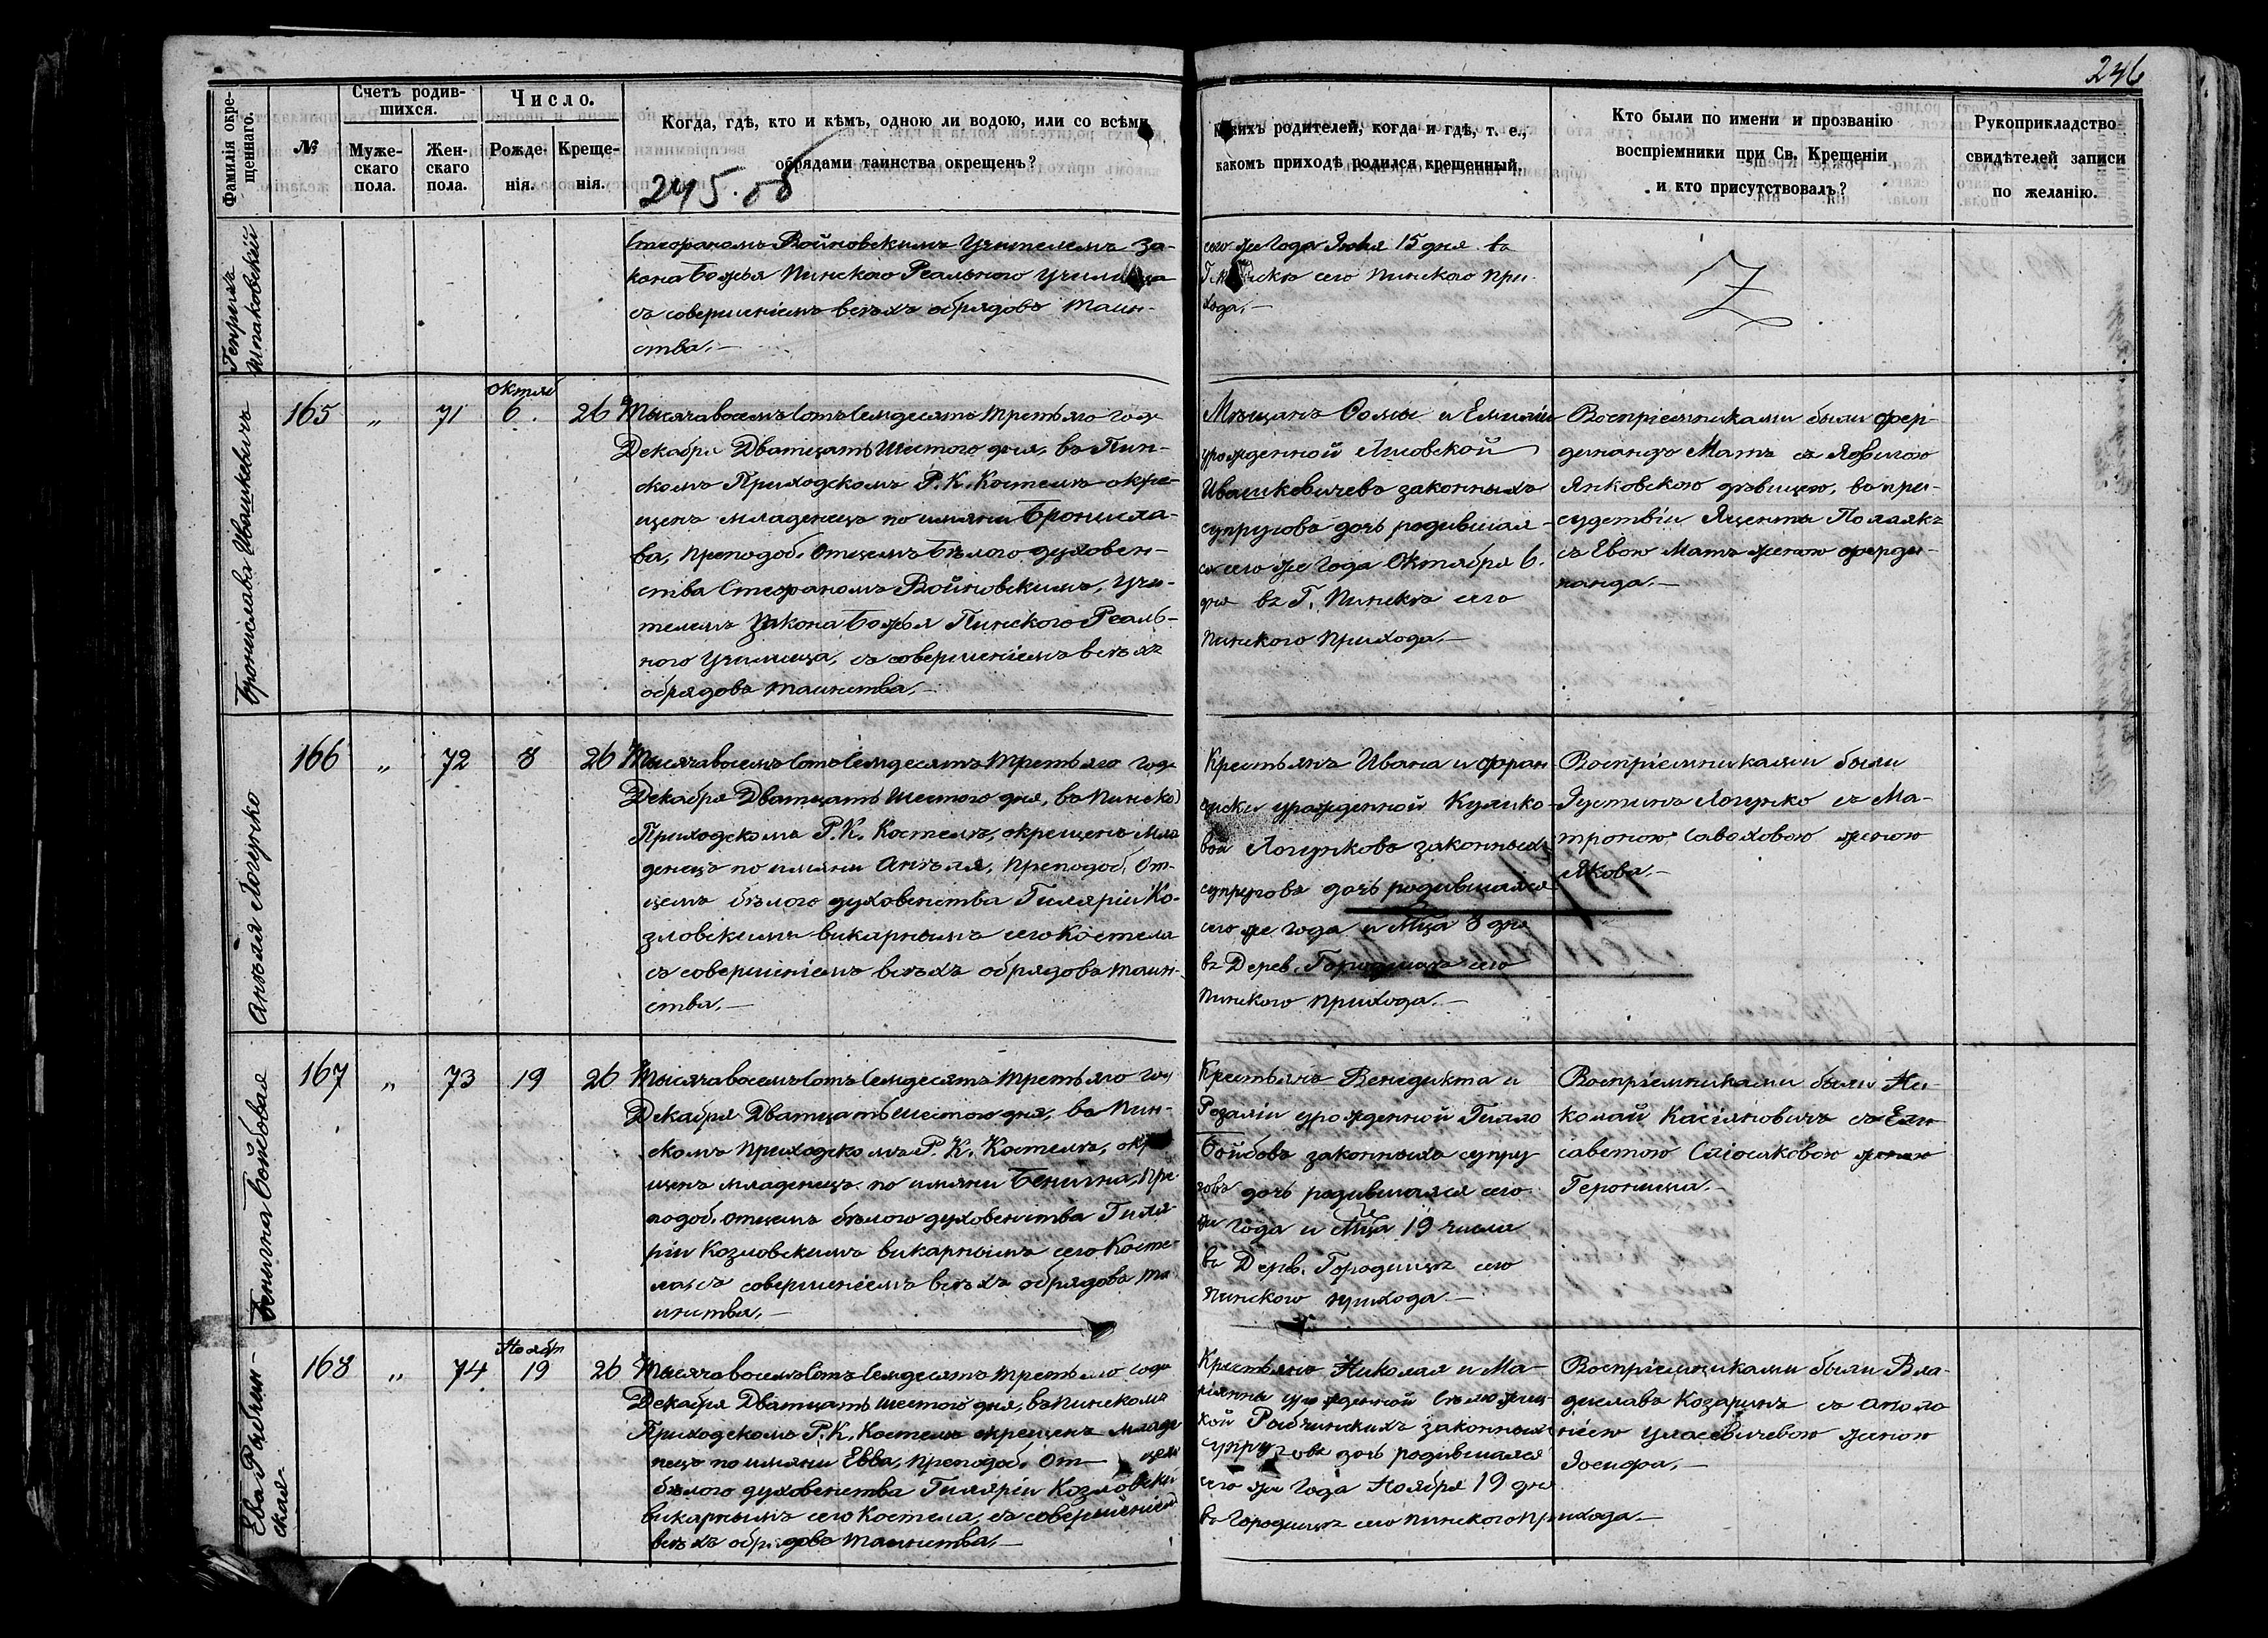 246
Фамилія окре-
щеннаго.
№
Счетъ родив-
шихся.
Муже-
скаго
пола.
Жен-
скаго
пола.
Число.
Рожде-
нія.
Креще-
нія.
Когда, гдѣ, кто и кѣмъ, одною ли водою, или со всѣми
обрядами таинства окрещенъ?
245.об
родителей, когда и гдѣ, т. е.,
какомъ приходѣ родился крещенный.
Кто были по имени и прозванію
воспріемники при Св. Крещеніи
и кто присутствовалъ?
Рукоприкладство
свидѣтелей записи
по желанію.
Стефаномъ Войновскимъ Учителемъ За-
кона Божья Пинскаго Реальнаго Училища
съ совершеніемъ всѣхъ обрядовъ Таин-
ства.—
сего же Года 15 дня въ
сего Пинского При-
хода.—
Бронислава Ивашкевичъ
165 „ 71 Октяб 6. 26
Тысяча восемъ Сотъ Семдесятъ Третьяго Года
Декабря Дватцатъ Шестого дня, въ Пин-
скомъ Приходскомъ Р. К. Костелѣ окре-
щенъ младенецъ по имяни Бронисла-
ва, Преподоб. Отцемъ Бѣлого духовен-
ства Стефаномъ Войновскимъ, Учи-
телемъ Закона Божья Пинского Реаль-
ного Училища, съ совершеніемъ всѣхъ
обрядовъ таинства.—
Мѣщанъ Фомы и Емиліи
урожденной Лисовской
Ивашкевичевъ законныхъ
супруговъ дочь родившая-
ся сего же Года Октября 6.
дня въ Г. Пинскѣ сего
Пинского Прихода.—
Воспріемниками были Фер-
динандъ Матъ съ
Янковскою дѣвицею, въ при-
судствіи Яцента Поляакъ
съ Евою Матъ женою Ферди-
нанда.—
Анѣля Логунко
166 „ 72 8 26
Тысяча восемъ Сотъ Семдесятъ Третьяго Года
Декабря Дватцатъ Шестого дня, въ Пинско
Приходскомъ Р. К. Костелѣ, окрещенъ мла
денецъ по имяни Анѣля, Преподоб. От-
цемъ бѣлого духовенства Гиляріи Ко-
зловскимъ викарнымъ сего Костела
съ совершеніемъ всѣхъ обрядовъ таин-
ства.—
Крестьянъ Ивана и Фран
циски урожденной Кулико-
вой Логунковъ законныхъ
супруговъ дочь родившаяся
сего же года и Мца 8 дня
въ Дерев. Городищѣ сего
Пинского Прихода.—
Воспріемниками были
Густинъ Логунко съ Ма-
троною Саваховою женою
Якова.—
Бенигна Бойбовая
167 „ 73 19 26
Тысяча восемъ Сотъ Семдесятъ Третьяго год
Декабря Дватцатъ Шестого дня, въ Пин-
скомъ Приходскомъ Р. К. Костелѣ, окре
щенъ младенецъ по имяни Бенигна, Пре
подоб. Отцемъ бѣлого духовенства Гиля-
ріи Козловскимъ викарнымъ сего Косте-
ла съ совершеніемъ всѣхъ обрядовъ та
инства.—
Крестьянъ Бенедикта и
Розаліи урожденной Гилло
Бойбовъ законныхъ супру
говъ дочь родившаяся сего
же Года и Мца 19 числа
въ Дерев. Городищѣ сего
Пинского прихода—
Воспріемниками были Ни-
колай Касіяновичъ съ Ели
саветою женою
Геронима.—
Ева Рабчин-
ская
168 „ 74 Ноябр 19 26
Тысяча восемъ Сотъ Семдесятъ Третьяго года
Декабря Дватцатъ Шестого дня, въ Пинскомъ
Приходскомъ Р. К. Костелѣ окрещенъ младе
нецъ по имяни Евва, Преподоб. Отцемъ
бѣлого духовенства Гиляріи Козловски
викарнымъ сего Костела, съ совершеніем
всѣхъ обрядовъ таинства.—
Крестьянъ Николая и Ма-
ріянны урожденной
кой Рабчинскихъ законныхъ
супруговъ дочь родившаяся
сего же Года Ноября 19 дня
въ Городищѣ сего Пинского Прихода.—
Воспріемниками были Вла-
диславъ Козаринъ съ Аполо
ніею женою
Іосифа.—